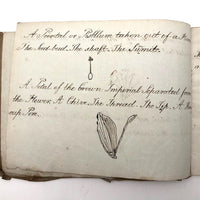 A Pointal or Pistllum taken out of a
The Seed-bud The Shaft. The Summit.
A Petal of the Crown Imperial Separated from
the Flower. A Chive. The Thread. The Tip. A
cup Pore.